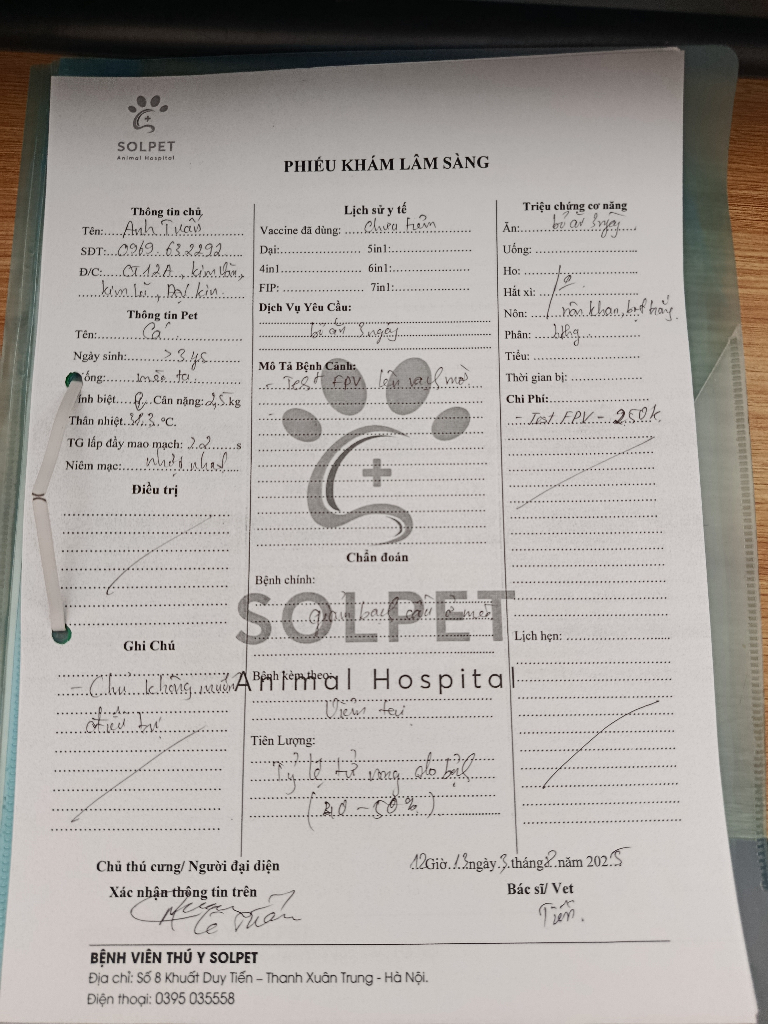 SOLPET
Animal Hospital
PHIẾU KHÁM LÂM SÀNG
Thông tin chủ
Tên: Anh Tuấn
SĐT: 0969 632292
Đ/C: CT12A, Kim Văn,
Kim Lũ, Đại Kim
Thông tin Pet
Tên: Cá
Ngày sinh: >3 ys
Giống: mèo ta
Tính biệt: Cân nặng: 2,5 kg
Thân nhiệt 38.3 °C.
TG lấp đầy mao mạch: 2.2 s
Niêm mạc: nhợt nhạt
Điều trị
Ghi Chú
- Chủ không muốn
điều trị
Lịch sử y tế
Vaccine đã dùng: chưa tiêm
Dại: 5in1:
4in1 6in1:
FIP: 7in1:
Dịch Vụ Yêu Cầu:
bỏ ăn 3 ngày
Mô Tả Bệnh Cảnh:
- Test FPV lên vạch mờ
-
Chẩn đoán
Bệnh chính:
giảm bạch cầu ở mèo
Bệnh kèm theo:
Viêm tai
Tiên Lượng:
Tỷ lệ tử vong do bệnh
(40 - 50%)
SOLPET
Animal Hospital
Triệu chứng cơ năng
Ăn: bỏ ăn 3 ngày
Uống:
Ho:
Hắt xì:
Nôn: nôn khan, bọt trắng
Phân:
Tiểu:
Thời gian bị:
Chi Phí:
- Test FPV - 250k
Lịch hẹn:
Chủ thú cưng/ Người đại diện
Xác nhận thông tin trên
Lê Tuấn
12 Giờ 13 ngày 3 tháng 8 năm 2025
Bác sĩ/ Vet
Tiến.
BỆNH VIỆN THÚ Y SOLPET
Địa chỉ: Số 8 Khuất Duy Tiến – Thanh Xuân Trung - Hà Nội.
Điện thoại: 0395 035558